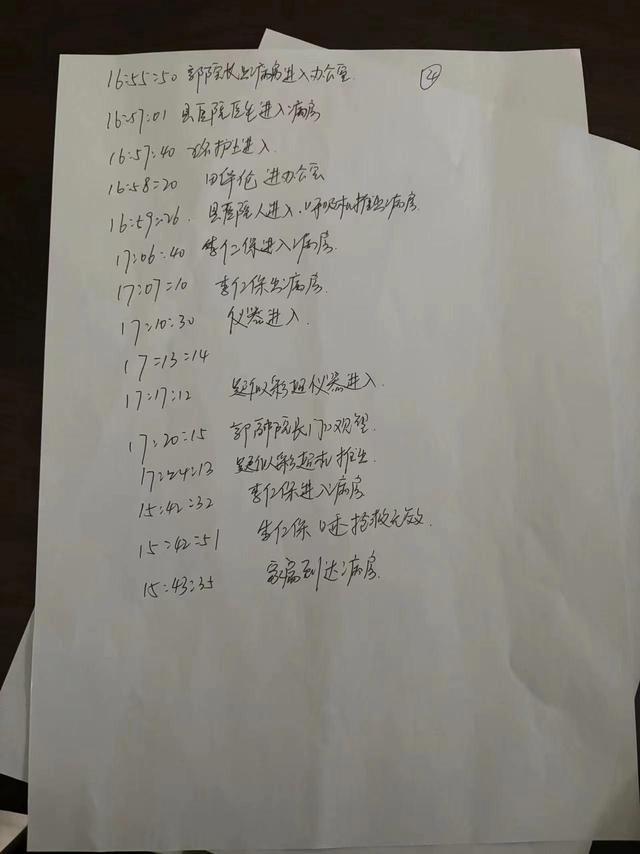 ④
16:55:50 郭院长出病房进入办公室
16:57:01 县医院医生进入病房
16:57:40 护士进入.
16:58:20 田 伦进办公室
16:59:26. 县医院人进入.呼吸机推出病房.
17:06:40 李仁保进入病房.
17:07:10 李仁保出病房.
17:10:30 仪器进入.
17:13:14
17:17:12 疑似彩超仪器进入.
17:20:15 郭 院长门口观望.
17:24:13 疑似彩超机推出.
15:42:32 李仁保进入病房
15:42:51 李仁保口述抢救无效.
15:43:35 家属到达病房.